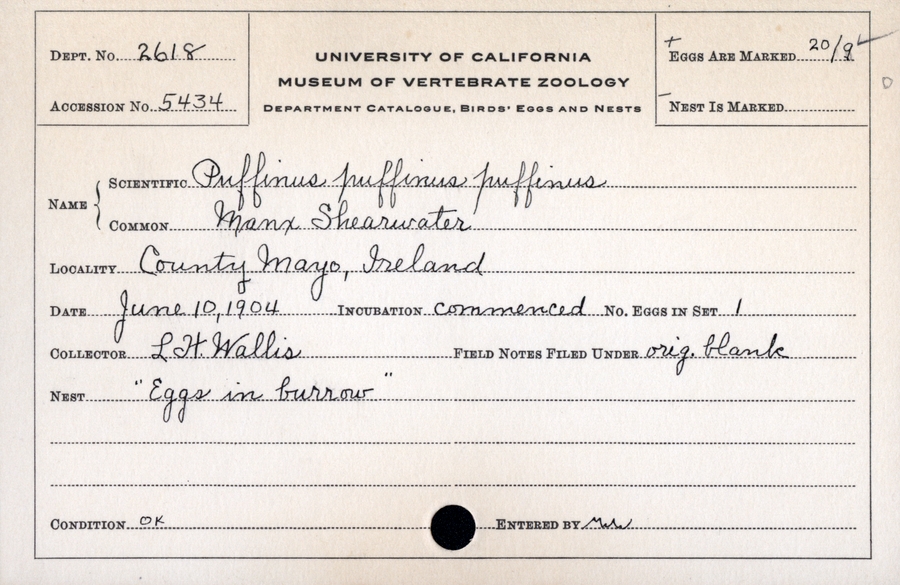 DEPT. NO. 2618
ACCESSION NO. 5434
UNIVERSITY OF CALIFORNIA
MUSEUM OF VERTEBRATE ZOOLOGY
DEPARTMENT CATALOGUE, BIRDS' EGGS AND NESTS
+ EGGS ARE MARKED 20/9
– NEST IS MARKED
NAME
SCIENTIFIC Puffinus puffinus puffinus
COMMON Manx Shearwater
LOCALITY County Mayo, Ireland
DATE June 10, 1904 INCUBATION commenced NO. EGGS IN SET 1
COLLECTOR L.H. Wallis FIELD NOTES FILED UNDER orig. blank
NEST "Eggs in burrow"
CONDITION OK ENTERED BY